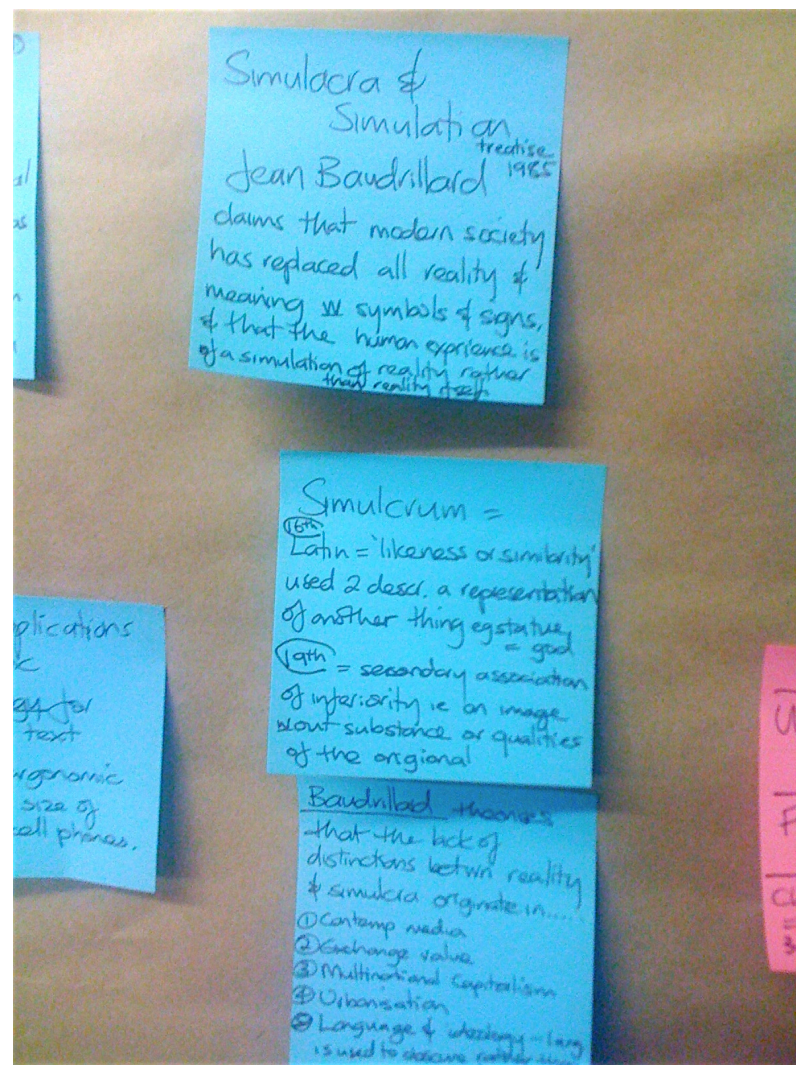 Simulacra &
Simulation
treatise
1985
Jean Baudrillard
claims that modern society
has replaced all reality &
meaning w symbols & signs,
& that the human exprience is
of a simulation of reality rather
than reality itself
Simulcrum =
16th
Latin = 'likeness or similarity'
used 2 descr. a representation
of another thing eg statue
= god
19th = secondary association
of inferiority ie an image
w out substance or qualities
of the origional
Baudrillard theories
that the lack of
distinctions betwn reality
& simulcra originate in.....
① Contemp media
② Exchange value
③ Multinational Capitalism
④ Urbanisation
⑤ Language & ideology - lang
is used to obscure rather
plications
for
text
rgonomic
size of
cell phones.